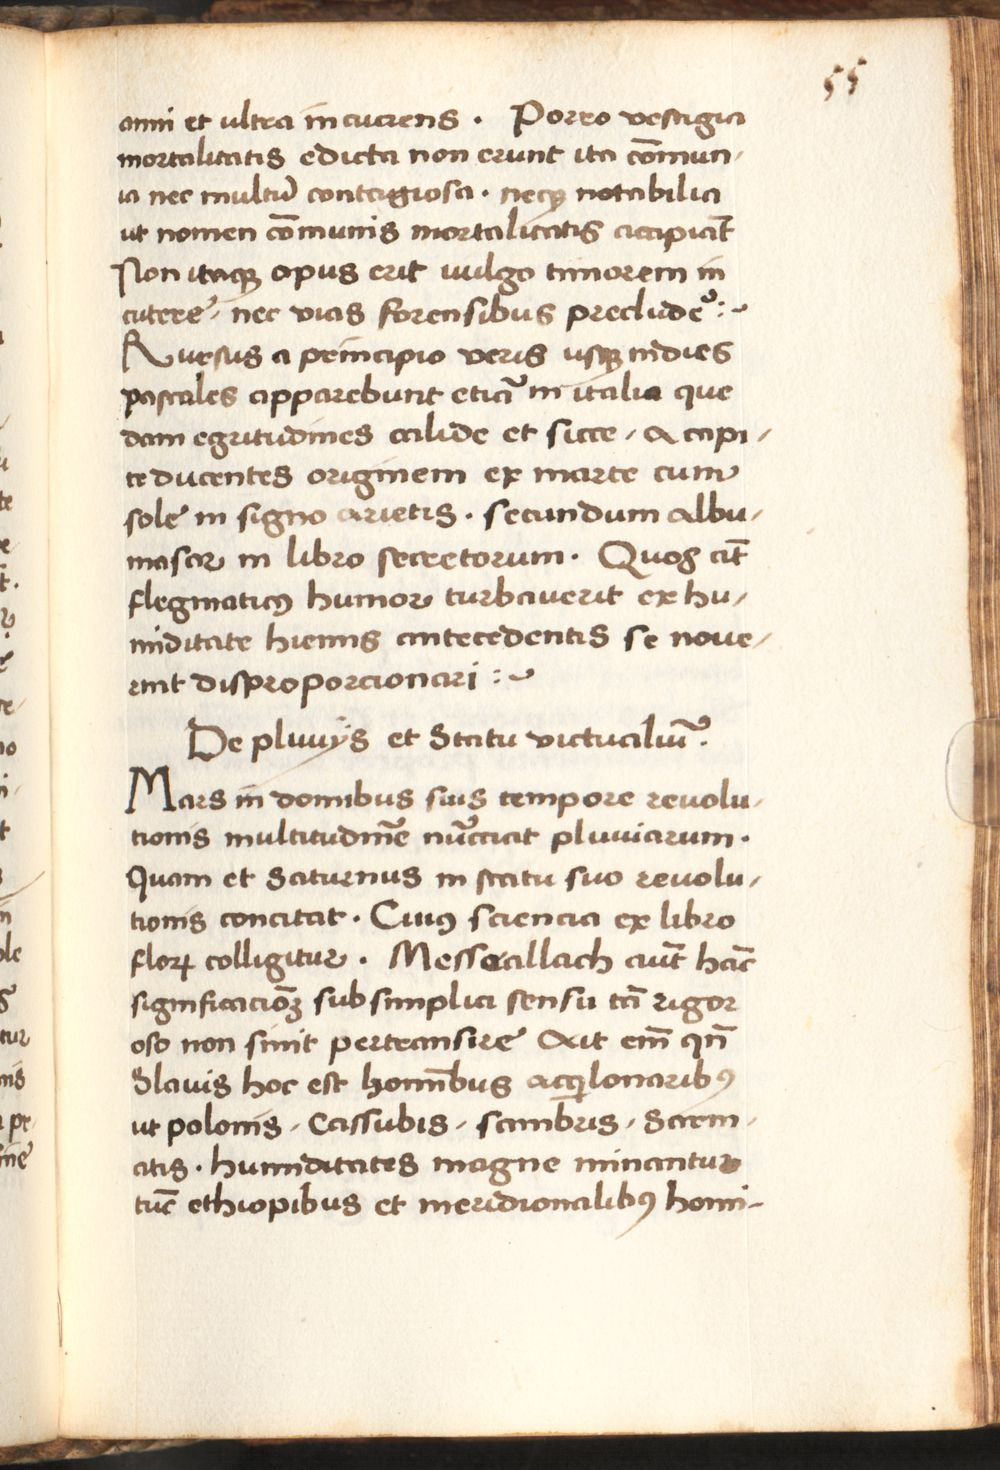 55
anni et ultra incurrens . Porro vestigia
mortalitatis edicta non erunt ita cōmun-
ia nec multū contagiosa . necꝫ notabilia
ut nomen cōmunis mortalitatis accipiāt
Non itaqꝫ opus erit uulgo timorem in
cutere , nec vias forensibus preclude᷑ :~
Rursus a principio veris usqꝫ in dies
pascales apparebunt etiā in italia que
dam egritudines calide et sicce , a capi-
te ducentes originem ex marte cum
sole in signo arietis . secundum albu-
masar in libro secretorum . Quos cū̄
flegmaticꝰ humor turbauerit ex hu-
miditate hiemis antecedentis se noue-
rint disproporcionari :~
De pluuijs et Statu victualiū .
Mars in domibus suis tempore reuolu-
tionis multitudinē nūcciat pluuiarum .
Quam et Saturnus in statu suo reuolu-
tionis concitat . Cuiꝰ sciencia ex libro
florꝝ colligitur . Messcallach aūt hāc
significacioꝫ sub simplici sensu tā rigor
oso non sinit pertransire Ait em̄ qn̄
Slauis hoc est hominībus aqilonaribꝰ
ut polonis , Cassubis , sambris , Sarm-
atis . humiditates magne minantur
tūc ethiopibus et meridionalibꝰ homi-